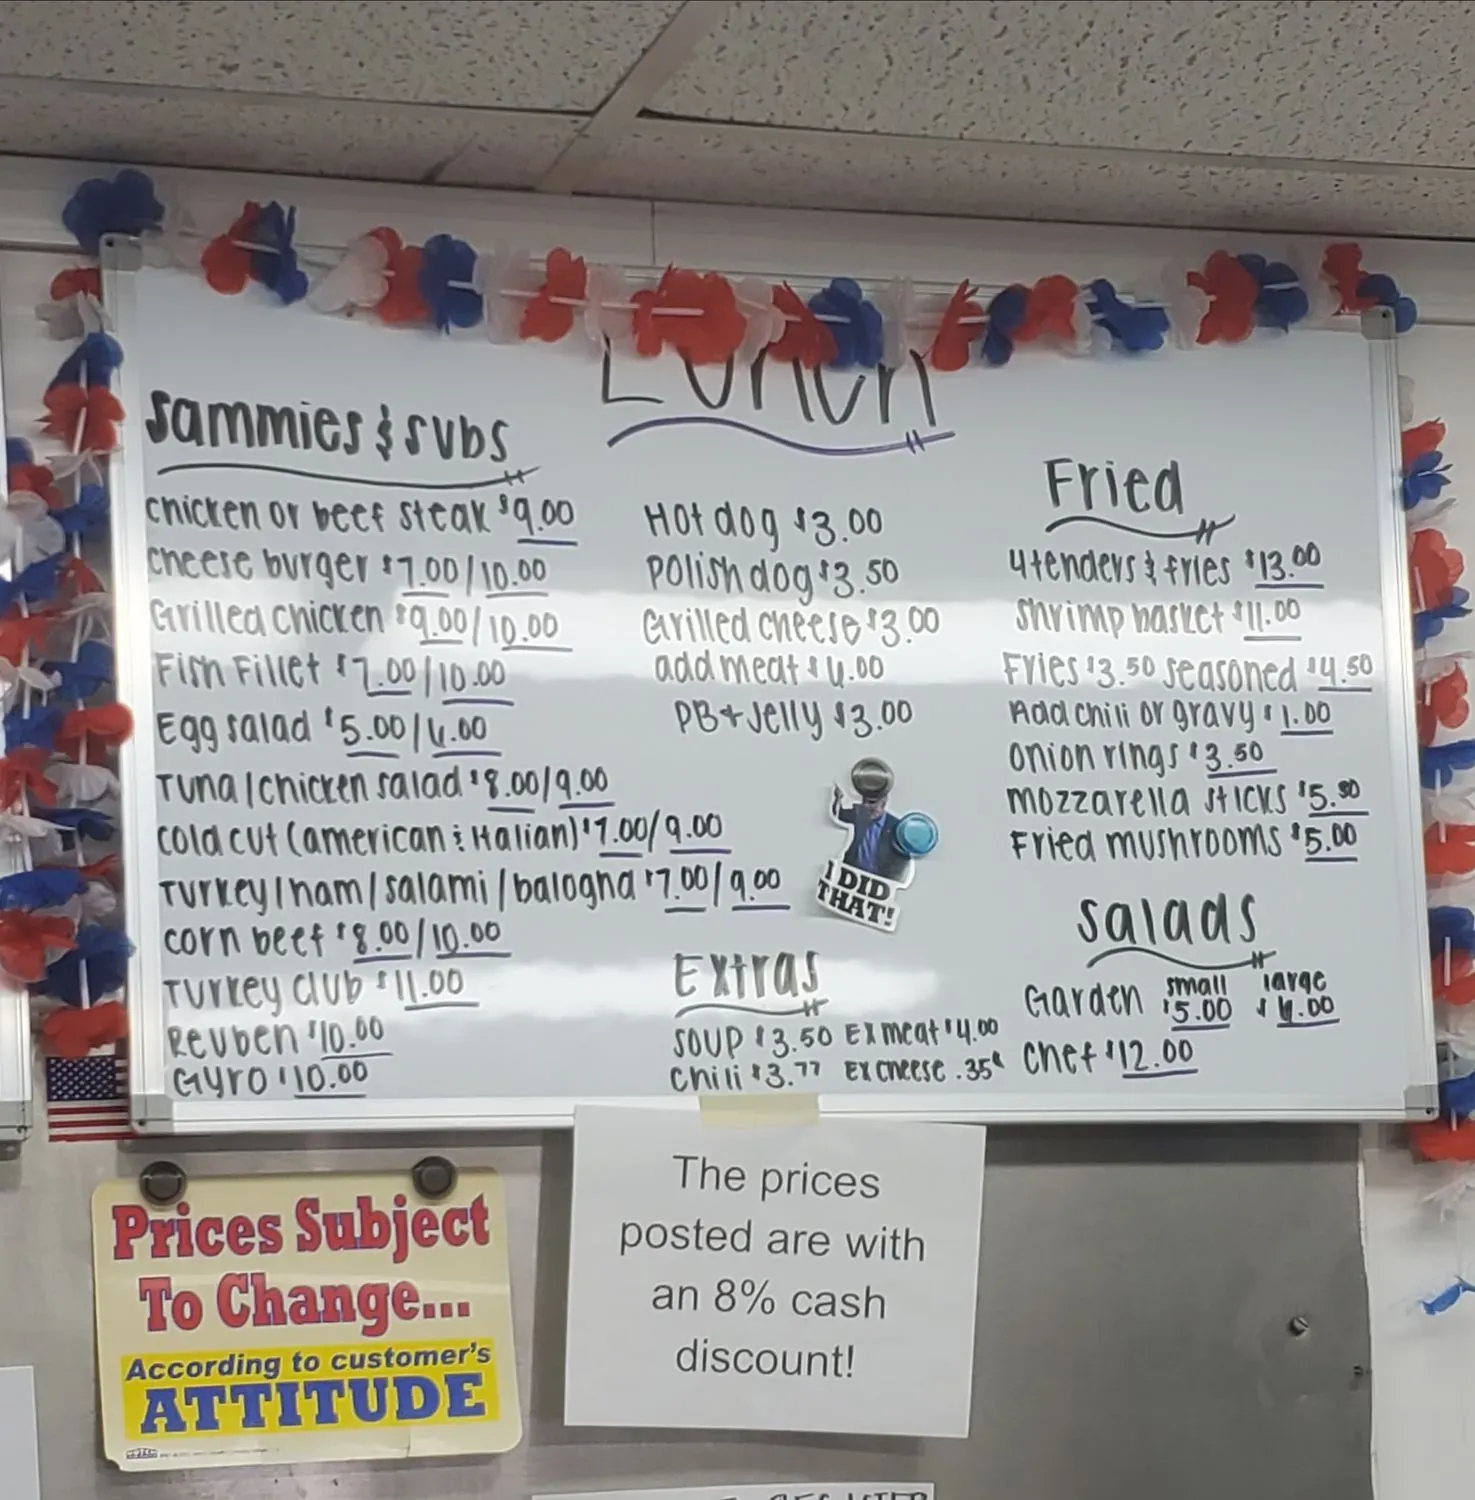 Lunch
Sammies & Subs
Chicken or beef steak $9.00
Cheese burger $7.00/10.00
Grilled chicken $9.00/10.00
Fish Fillet $7.00/10.00
Egg salad $5.00/6.00
Tuna/chicken salad $8.00/9.00
Cold cut (american & Italian) $7.00/9.00
Turkey/ham/salami/balogna $7.00/9.00
corn beef $8.00/10.00
Turkey club $11.00
Reuben $10.00
Gyro $10.00
Hot dog $3.00
Polish dog $3.50
Grilled cheese $3.00
add meat $4.00
PB + Jelly $3.00
I DID
THAT!
Extras
Soup $3.50 Ex meat $4.00
Chili $3.77 Ex cheese .35¢
Fried
4 tenders & fries $13.00
Shrimp basket $11.00
Fries $3.50 Seasoned $4.50
Add chili or gravy $1.00
Onion rings $3.50
Mozzarella sticks $5.50
Fried mushrooms $5.00
Salads
small large
Garden $5.00 $6.00
Chef $12.00
Prices Subject
To Change...
According to customer's
ATTITUDE
The prices
posted are with
an 8% cash
discount!